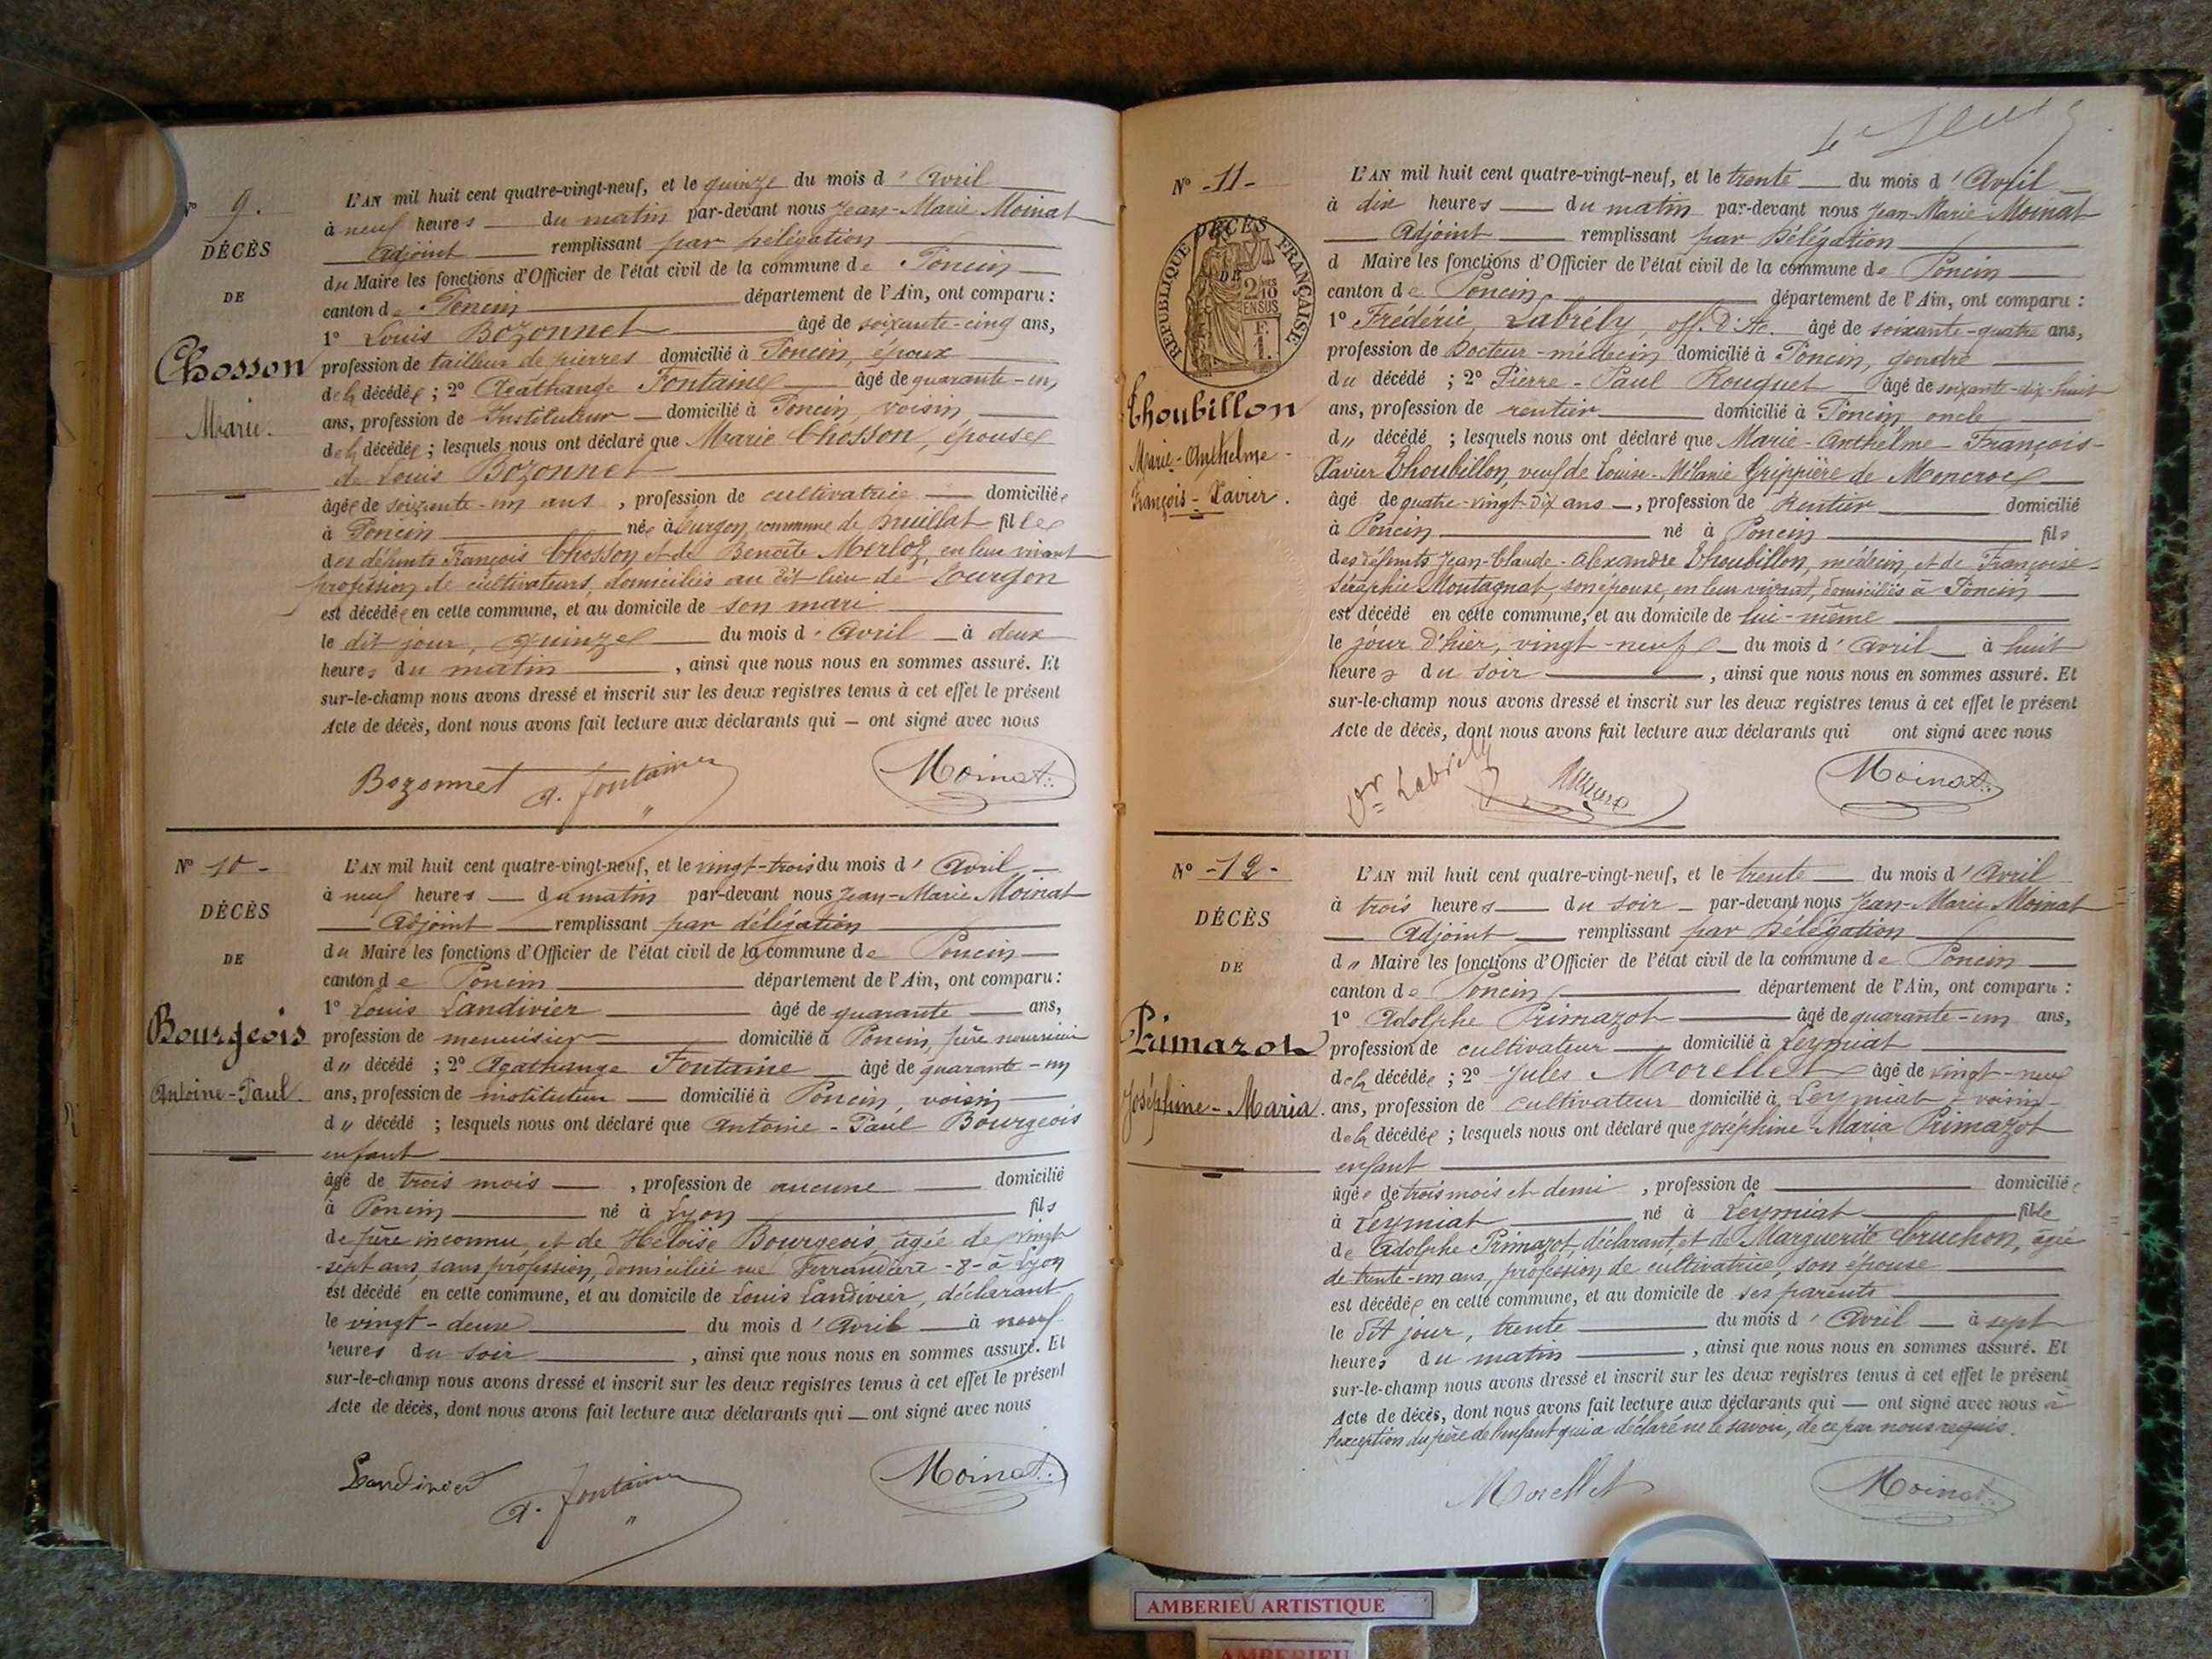 N° 9.
DÉCÈS
DE
Chosson
Marie.
L'AN mil huit cent quatre-vingt-neuf, et le quinze du mois d' Avril
à neuf heures du matin par-devant nous Jean-Marie Moinat
Adjoint remplissant par délégation
du Maire les fonctions d'Officier de l'état civil de la commune de Poncin
canton de Poncin département de l'Ain, ont comparu :
1° Louis Bozonnet âgé de soixante-cinq ans,
profession de tailleur de pierres domicilié à Poncin, époux
de la décédée ; 2° Agathange Fontaine âgé de quarante-un
ans, profession de Instituteur domicilié à Poncin, voisin
de la décédée ; lesquels nous ont déclaré que Marie Chosson, épouse
de Louis Bozonnet
âgée de soixante-un ans , profession de cultivatrice domiciliée
à Poncin née à commune de fille
des défunts François Chosson et de Benoîte Merloz, en leur vivant
profession de cultivateurs, domiciliés au dit lieu de
est décédée en cette commune, et au domicile de son mari
le dit jour, quinze du mois d' Avril à deux
heures du matin , ainsi que nous nous en sommes assuré. Et
sur-le-champ nous avons dressé et inscrit sur les deux registres tenus à cet effet le présent
Acte de décès, dont nous avons fait lecture aux déclarants qui — ont signé avec nous
Bozonnet A. fontaine Moinat
N° 10 -
DÉCÈS
DE
Bourgeois
Antoine-Paul.
L'AN mil huit cent quatre-vingt-neuf, et le vingt-trois du mois d' Avril
à neuf heures du matin par-devant nous Jean-Marie Moinat
Adjoint remplissant par délégation
du Maire les fonctions d'Officier de l'état civil de la commune de Poncin
canton de Poncin département de l'Ain, ont comparu :
1° Louis Landivier âgé de quarante ans,
profession de menuisier domicilié à Poncin, père nourricier
du décédé ; 2° Agathange Fontaine âgé de quarante-un
ans, profession de instituteur domicilié à Poncin, voisin
du décédé ; lesquels nous ont déclaré que Antoine-Paul Bourgeois
enfant
âgé de trois mois , profession de aucune domicilié
à Poncin né à Lyon fils
de père inconnu et de Héloïse Bourgeois, âgée de vingt
-sept ans, sans profession, domiciliée rue Ferrandière -8- à Lyon
est décédé en cette commune, et au domicile de Louis Landivier, déclarant
le vingt-deux du mois d' Avril à neuf
heures du soir , ainsi que nous nous en sommes assuré. Et
sur-le-champ nous avons dressé et inscrit sur les deux registres tenus à cet effet le présent
Acte de décès, dont nous avons fait lecture aux déclarants qui — ont signé avec nous
Landivier A. fontaine Moinat
N° -11-
DÉCÈS
DE
RÉPUBLIQUE FRANÇAISE
2/10
EN SUS
Thoubillon
Marie-Anthelme-
François-Xavier.
L'AN mil huit cent quatre-vingt-neuf, et le trente du mois d' Avril
à dix heures du matin par-devant nous Jean-Marie Moinat
Adjoint remplissant par délégation
d Maire les fonctions d'Officier de l'état civil de la commune de Poncin
canton de Poncin département de l'Ain, ont comparu :
1° Frédéric Labrély, off. d'Ac. âgé de soixante-quatre ans,
profession de Docteur-médecin domicilié à Poncin, gendre
du décédé ; 2° Pierre-Paul Rouquet âgé de soixante-dix-huit
ans, profession de rentier domicilié à Poncin, oncle
du décédé ; lesquels nous ont déclaré que Marie-Anthelme-François-
Xavier Thoubillon, veuf de Louise-Mélanie Grippière de Moncroc
âgé de quatre-vingt-dix ans , profession de Rentier domicilié
à Poncin né à Poncin fils
des défunts Jean-Claude-Alexandre Thoubillon, médecin, et de Françoise-
Séraphie Montagnat, son épouse, en leur vivant, domiciliés à Poncin
est décédé en cette commune, et au domicile de lui-même
le jour d'hier, vingt-neuf du mois d' Avril à huit
heures du soir , ainsi que nous nous en sommes assuré. Et
sur-le-champ nous avons dressé et inscrit sur les deux registres tenus à cet effet le présent
Acte de décès, dont nous avons fait lecture aux déclarants qui ont signé avec nous
Dr Labrély Moinat
N° -12-
DÉCÈS
DE
Primazot
Joséphine-Maria.
L'AN mil huit cent quatre-vingt-neuf, et le trente du mois d' Avril
à trois heures du soir par-devant nous Jean-Marie Moinat
Adjoint remplissant par délégation
du Maire les fonctions d'Officier de l'état civil de la commune de Poncin
canton de Poncin département de l'Ain, ont comparu :
1° Adolphe Primazot âgé de quarante-un ans,
profession de cultivateur domicilié à Leymiat
de la décédée ; 2° Jules Morellet âgé de vingt-neuf
ans, profession de cultivateur domicilié à Leymiat, voisin
de la décédée ; lesquels nous ont déclaré que Joséphine-Maria Primazot
enfant
âgée de trois mois et demi , profession de domiciliée
à Leymiat né à Leymiat fille
de Adolphe Primazot, déclarant, et de Marguerite Cruchon, âgée
de trente-un ans, profession de cultivatrice, son épouse
est décédée en cette commune, et au domicile de ses parents
le dit jour, trente du mois d' Avril à sept
heures du matin , ainsi que nous nous en sommes assuré. Et
sur-le-champ nous avons dressé et inscrit sur les deux registres tenus à cet effet le présent
Acte de décès, dont nous avons fait lecture aux déclarants qui — ont signé avec nous à
l'exception du père de l'enfant qui a déclaré ne le savoir, de ce par nous requis.
Morellet Moinat
AMBERIEU ARTISTIQUE
AMBERIEU